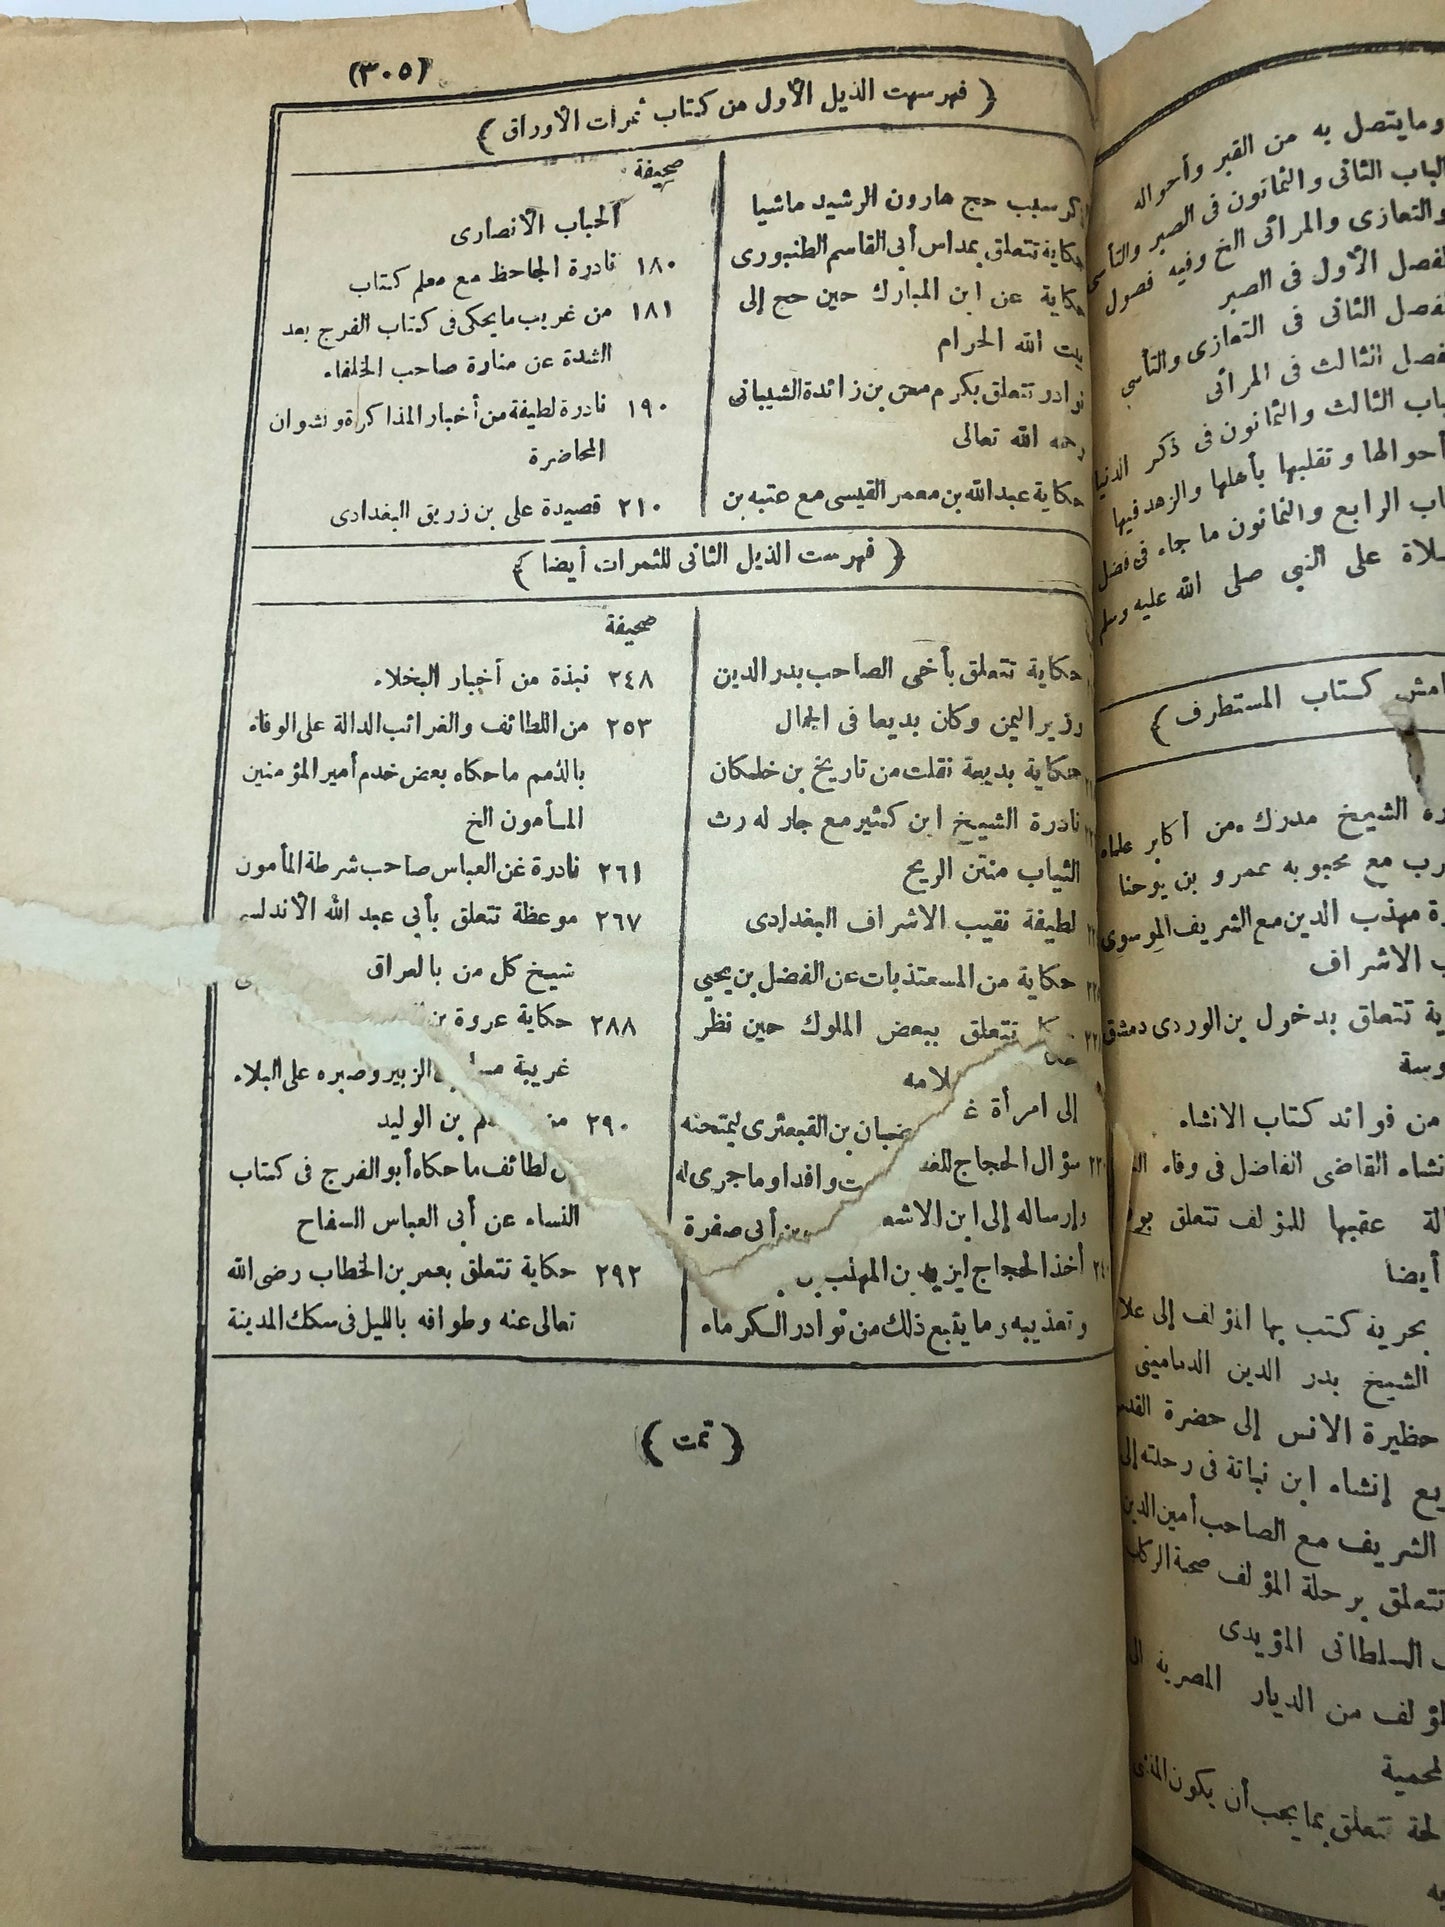 (٣٠٥)
﴿ فهرست الذيل الأول من كتاب ثمرات الأوراق ﴾
ذكر سبب حج هارون الرشيد ماشيا
حكاية تتعلق بمداس أبي القاسم الطنبورى
حكاية عن ابن المبارك حين حج إلى
بيت الله الحرام
نوادر تتعلق بكرم معن بن زائدة الشيبانى
رحمه الله تعالى
حكاية عبد الله بن معمر القيسى مع عتبه بن
صحيفة
الحباب الأنصارى
١٨٠ نادرة الجاحظ مع معلم كتاب
١٨١ من غريب ما يحكى فى كتاب الفرج بعد
الشدة عن منارة صاحب الخلفاء
١٩٠ نادرة لطيفة من أخبار المذاكرة ونشوان
المحاضرة
٢١٠ قصيدة على بن زريق البغدادى
﴿ فهرست الذيل الثانى للثمرات أيضا ﴾
حكاية تتعلق بأخى الصاحب بدر الدين
وزير اليمن وكان بديعا فى الجمال
حكاية بديعة نقلت من تاريخ بن خلكان
نادرة الشيخ ابن كثير مع جار له رث
الثياب منتن الريح
لطيفة نقيب الاشراف البغدادى
حكاية من المستعذبات عن الفضل بن يحيى
تتعلق ببعض الملوك حين نظر
إلى امرأة غلامه
سؤال الحجاج للغضبان بن القبعثرى ليمتحنه
وإرساله إلى ابن الاشعث وافدا وما جرى له
أخذ الحجاج ليزيد بن المهلب بن أبى صفرة
وتعذيبه وما يتبع ذلك من نوادر الكرماء
صحيفة
٢٤٨ نبذة من أخبار البخلاء
٢٥٣ من اللطائف والغرائب الدالة على الوفاء
بالذمم ما حكاه بعض خدم أمير المؤمنين
المأمون الخ
٢٦١ نادرة عن العباس صاحب شرطة المأمون
٢٦٧ موعظة تتعلق بأبى عبد الله الأندلسى
شيخ كل من بالعراق
٢٨٨ حكاية عروة بن الزبير وصبره على البلاء
غريبة مسلم بن الوليد
٢٩٠ من لطائف ما حكاه أبو الفرج فى كتاب
النساء عن أبى العباس السفاح
٢٩٢ حكاية تتعلق بعمر بن الخطاب رضى الله
تعالى عنه وطوافه بالليل فى سكك المدينة
﴿ تمت ﴾
وما يتصل به من القبر وأحواله
الباب الثانى والثمانون فى الصبر والتأسى
والتعازى والمراثى الخ وفيه فصول
الفصل الأول فى الصبر
الفصل الثانى فى التعازى والتأسى
الفصل الثالث فى المراثى
الباب الثالث والثمانون فى ذكر الدنيا
وأحوالها وتقلبها بأهلها والزهد فيها
الباب الرابع والثمانون ما جاء فى فضل
الصلاة على النبى صلى الله عليه وسلم
كتاب المستطرف ﴾
الشيخ مدرك من أكابر علماء
مع محبوبه عمرو بن يوحنا
مهذب الدين مع الشريف الموسوى
الاشراف
تتعلق بدخول بن الوردى دمشق
من فوائد كتاب الانشاء
القاضى الفاضل فى وفاء
عقبها للمؤلف تتعلق
أيضا
بحرية كتب بها المؤلف إلى
الشيخ بدر الدين الدمامينى
حظيرة الانس إلى حضرة القدس
إنشاء ابن نباتة فى رحلته إلى
الشريف مع الصاحب أمين الدين
تتعلق برحلة المؤلف صحبة الركاب
السلطانى المؤيدى
من الديار المصرية
تتعلق بما يجب أن يكون